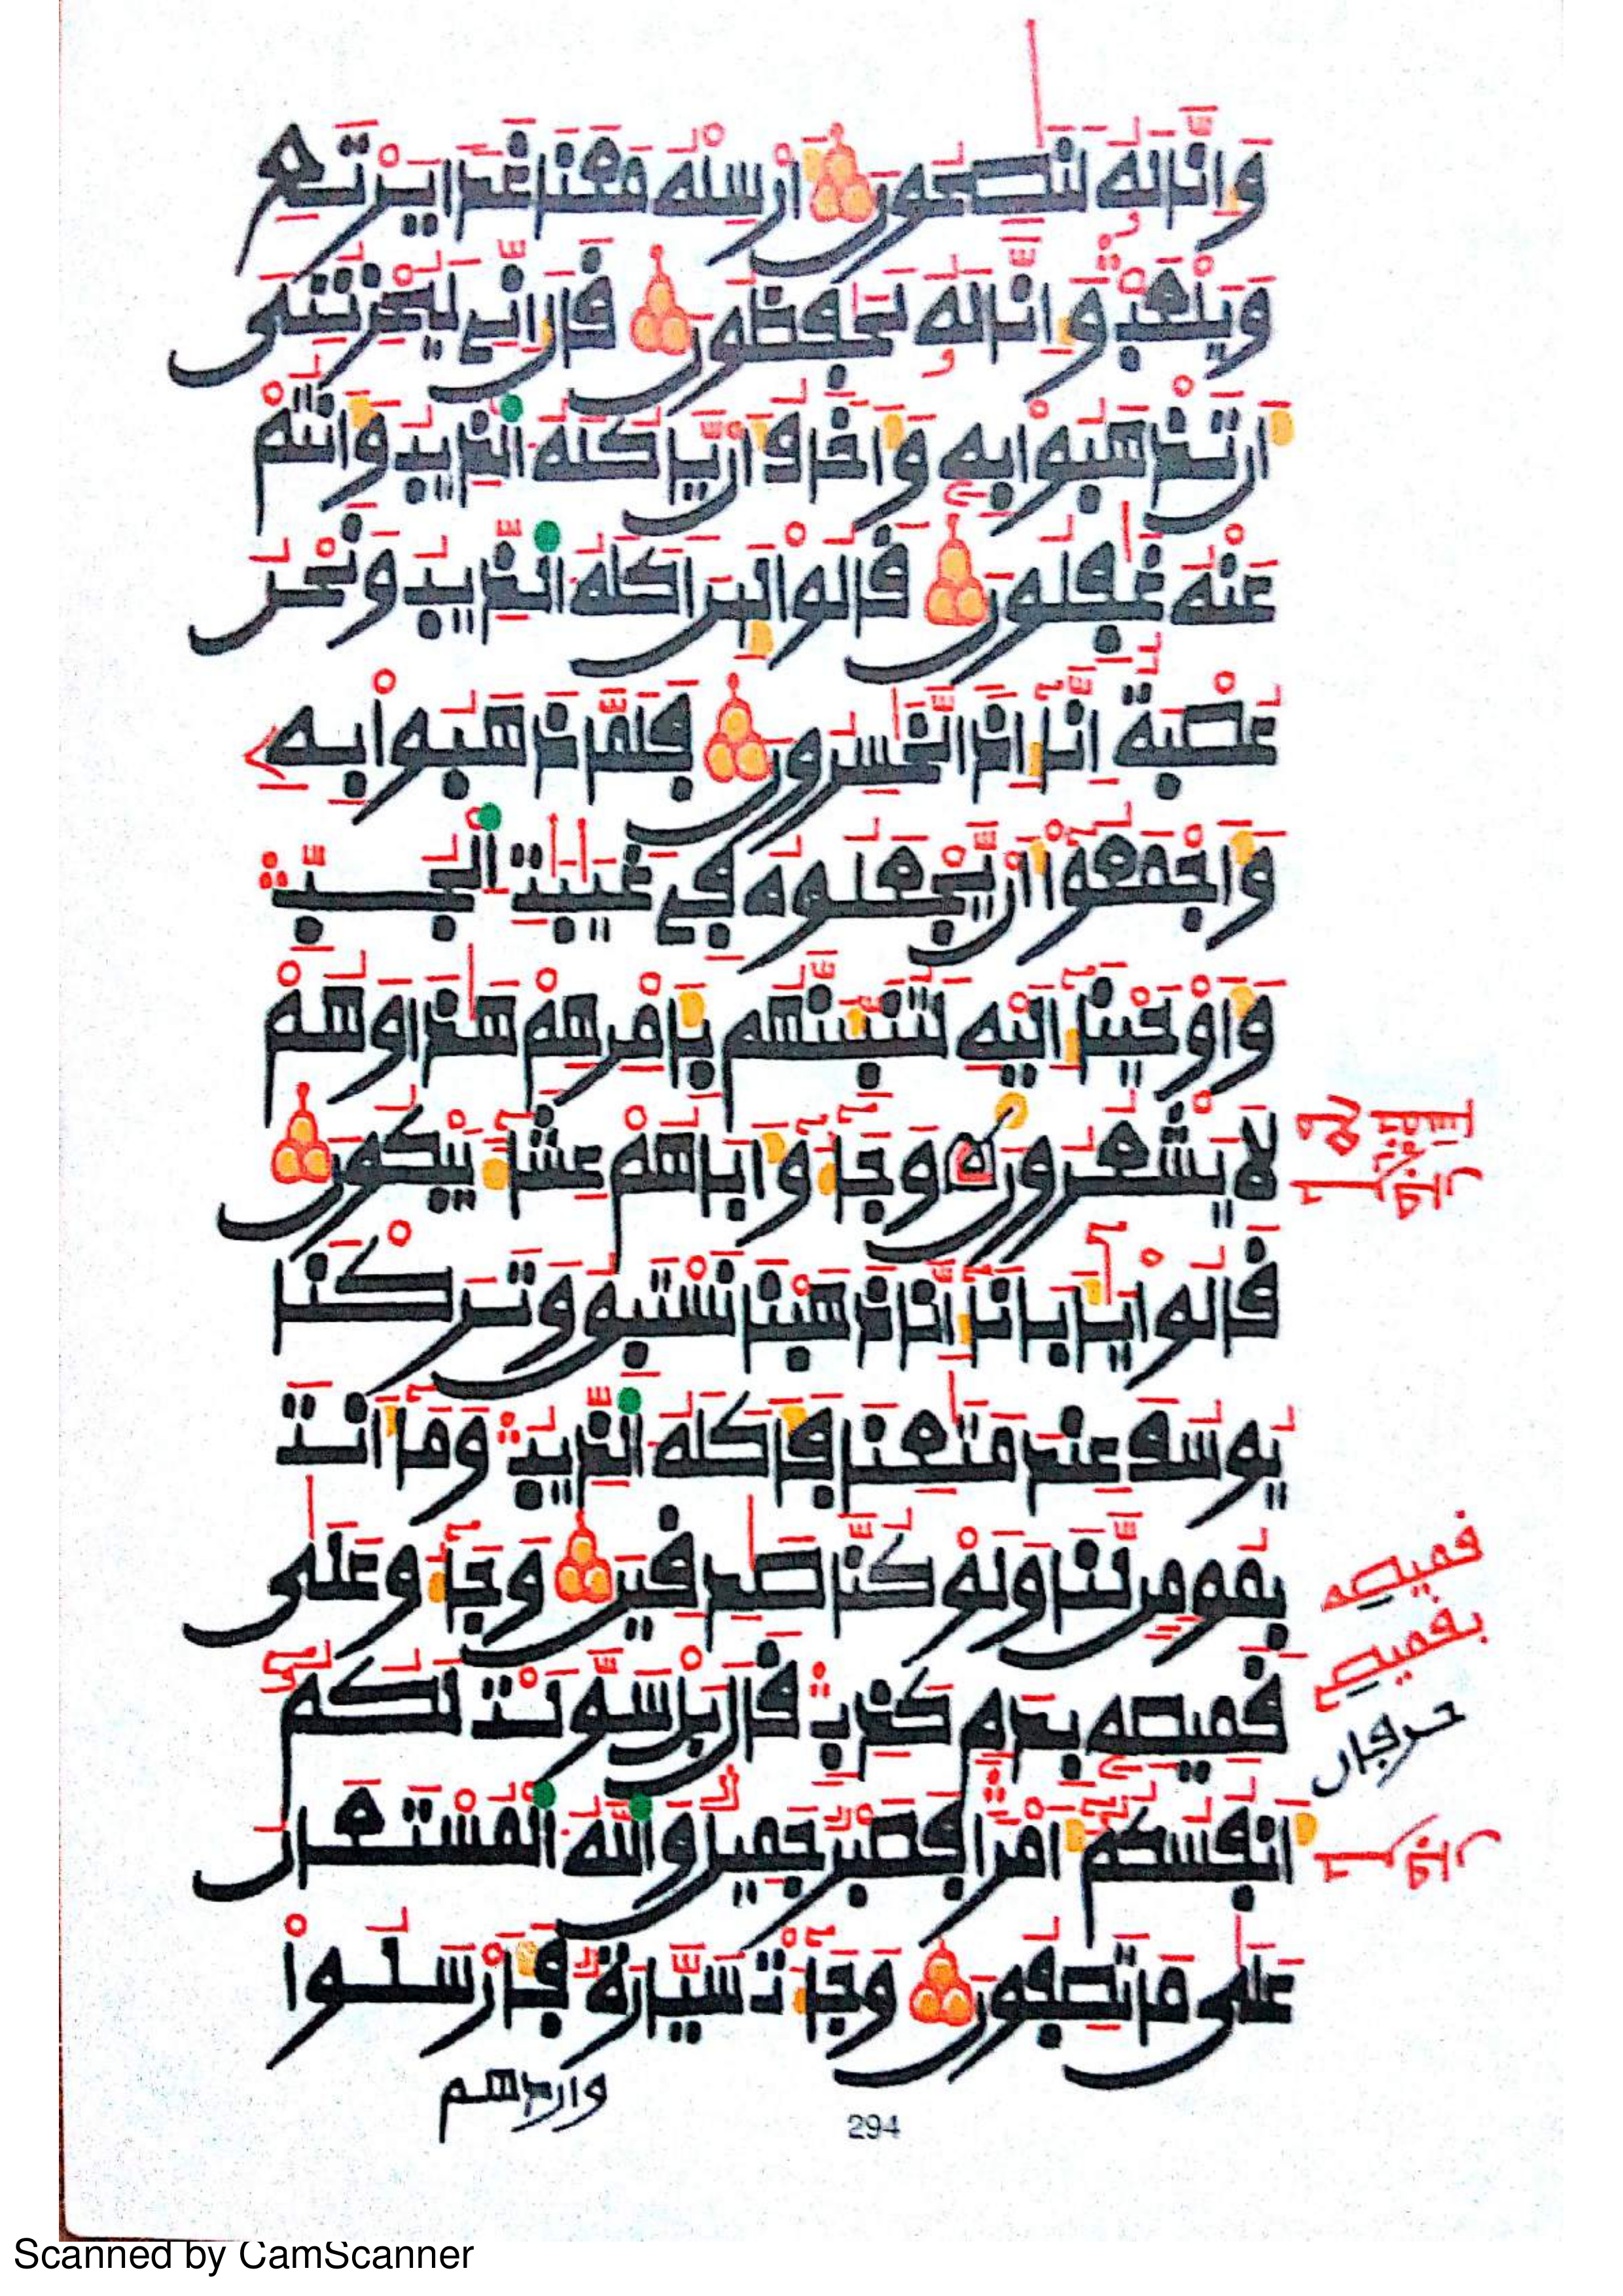 وَإِنَّا لَهُ لَنَٰصِحُونَ أَرْسِلْهُ مَعَنَا غَدًا يَرْتَعِ
وَيَلْعَبْ وَإِنَّا لَهُ لَحَٰفِظُونَ قَالَ إِنِّي لَيُحْزِنُنِي
أَن تَذْهَبُوا بِهِ وَأَخَافُ أَن يَّاكُلَهُ الذِّيبُ وَأَنتُمْ
عَنْهُ غَٰفِلُونَ قَالُوا لَئِنْ أَكَلَهُ الذِّيبُ وَنَحْنُ
عُصْبَةٌ إِنَّا إِذًا لَّخَٰسِرُونَ فَلَمَّا ذَهَبُوا بِهِ
وَأَجْمَعُوا أَن يَّجْعَلُوهُ فِي غَيَٰبَٰتِ الْجُبِّ
وَأَوْحَيْنَا إِلَيْهِ لَتُنَبِّئَنَّهُم بِأَمْرِهِمْ هَٰذَا وَهُمْ
لَا يَشْعُرُونَ وَجَاءُو أَبَاهُمْ عِشَاءً يَبْكُونَ
قَالُوا يَٰأَبَانَا إِنَّا ذَهَبْنَا نَسْتَبِقُ وَتَرَكْنَا
يُوسُفَ عِندَ مَتَٰعِنَا فَأَكَلَهُ الذِّيبُ وَمَا أَنتَ
بِمُومِنٍ لَّنَا وَلَوْ كُنَّا صَٰدِقِينَ وَجَاءُو عَلَىٰ
قَمِيصِهِ بِدَمٍ كَذِبٍ قَالَ بَلْ سَوَّلَتْ لَكُمُ
أَنفُسُكُمُ أَمْرًا فَصَبْرٌ جَمِيلٌ وَاللَّهُ الْمُسْتَعَانُ
عَلَىٰ مَا تَصِفُونَ وَجَاءَتْ سَيَّارَةٌ فَأَرْسَلُوا
واردهم
قميصه
بقميصه
حرفان
294
Scanned by CamScanner